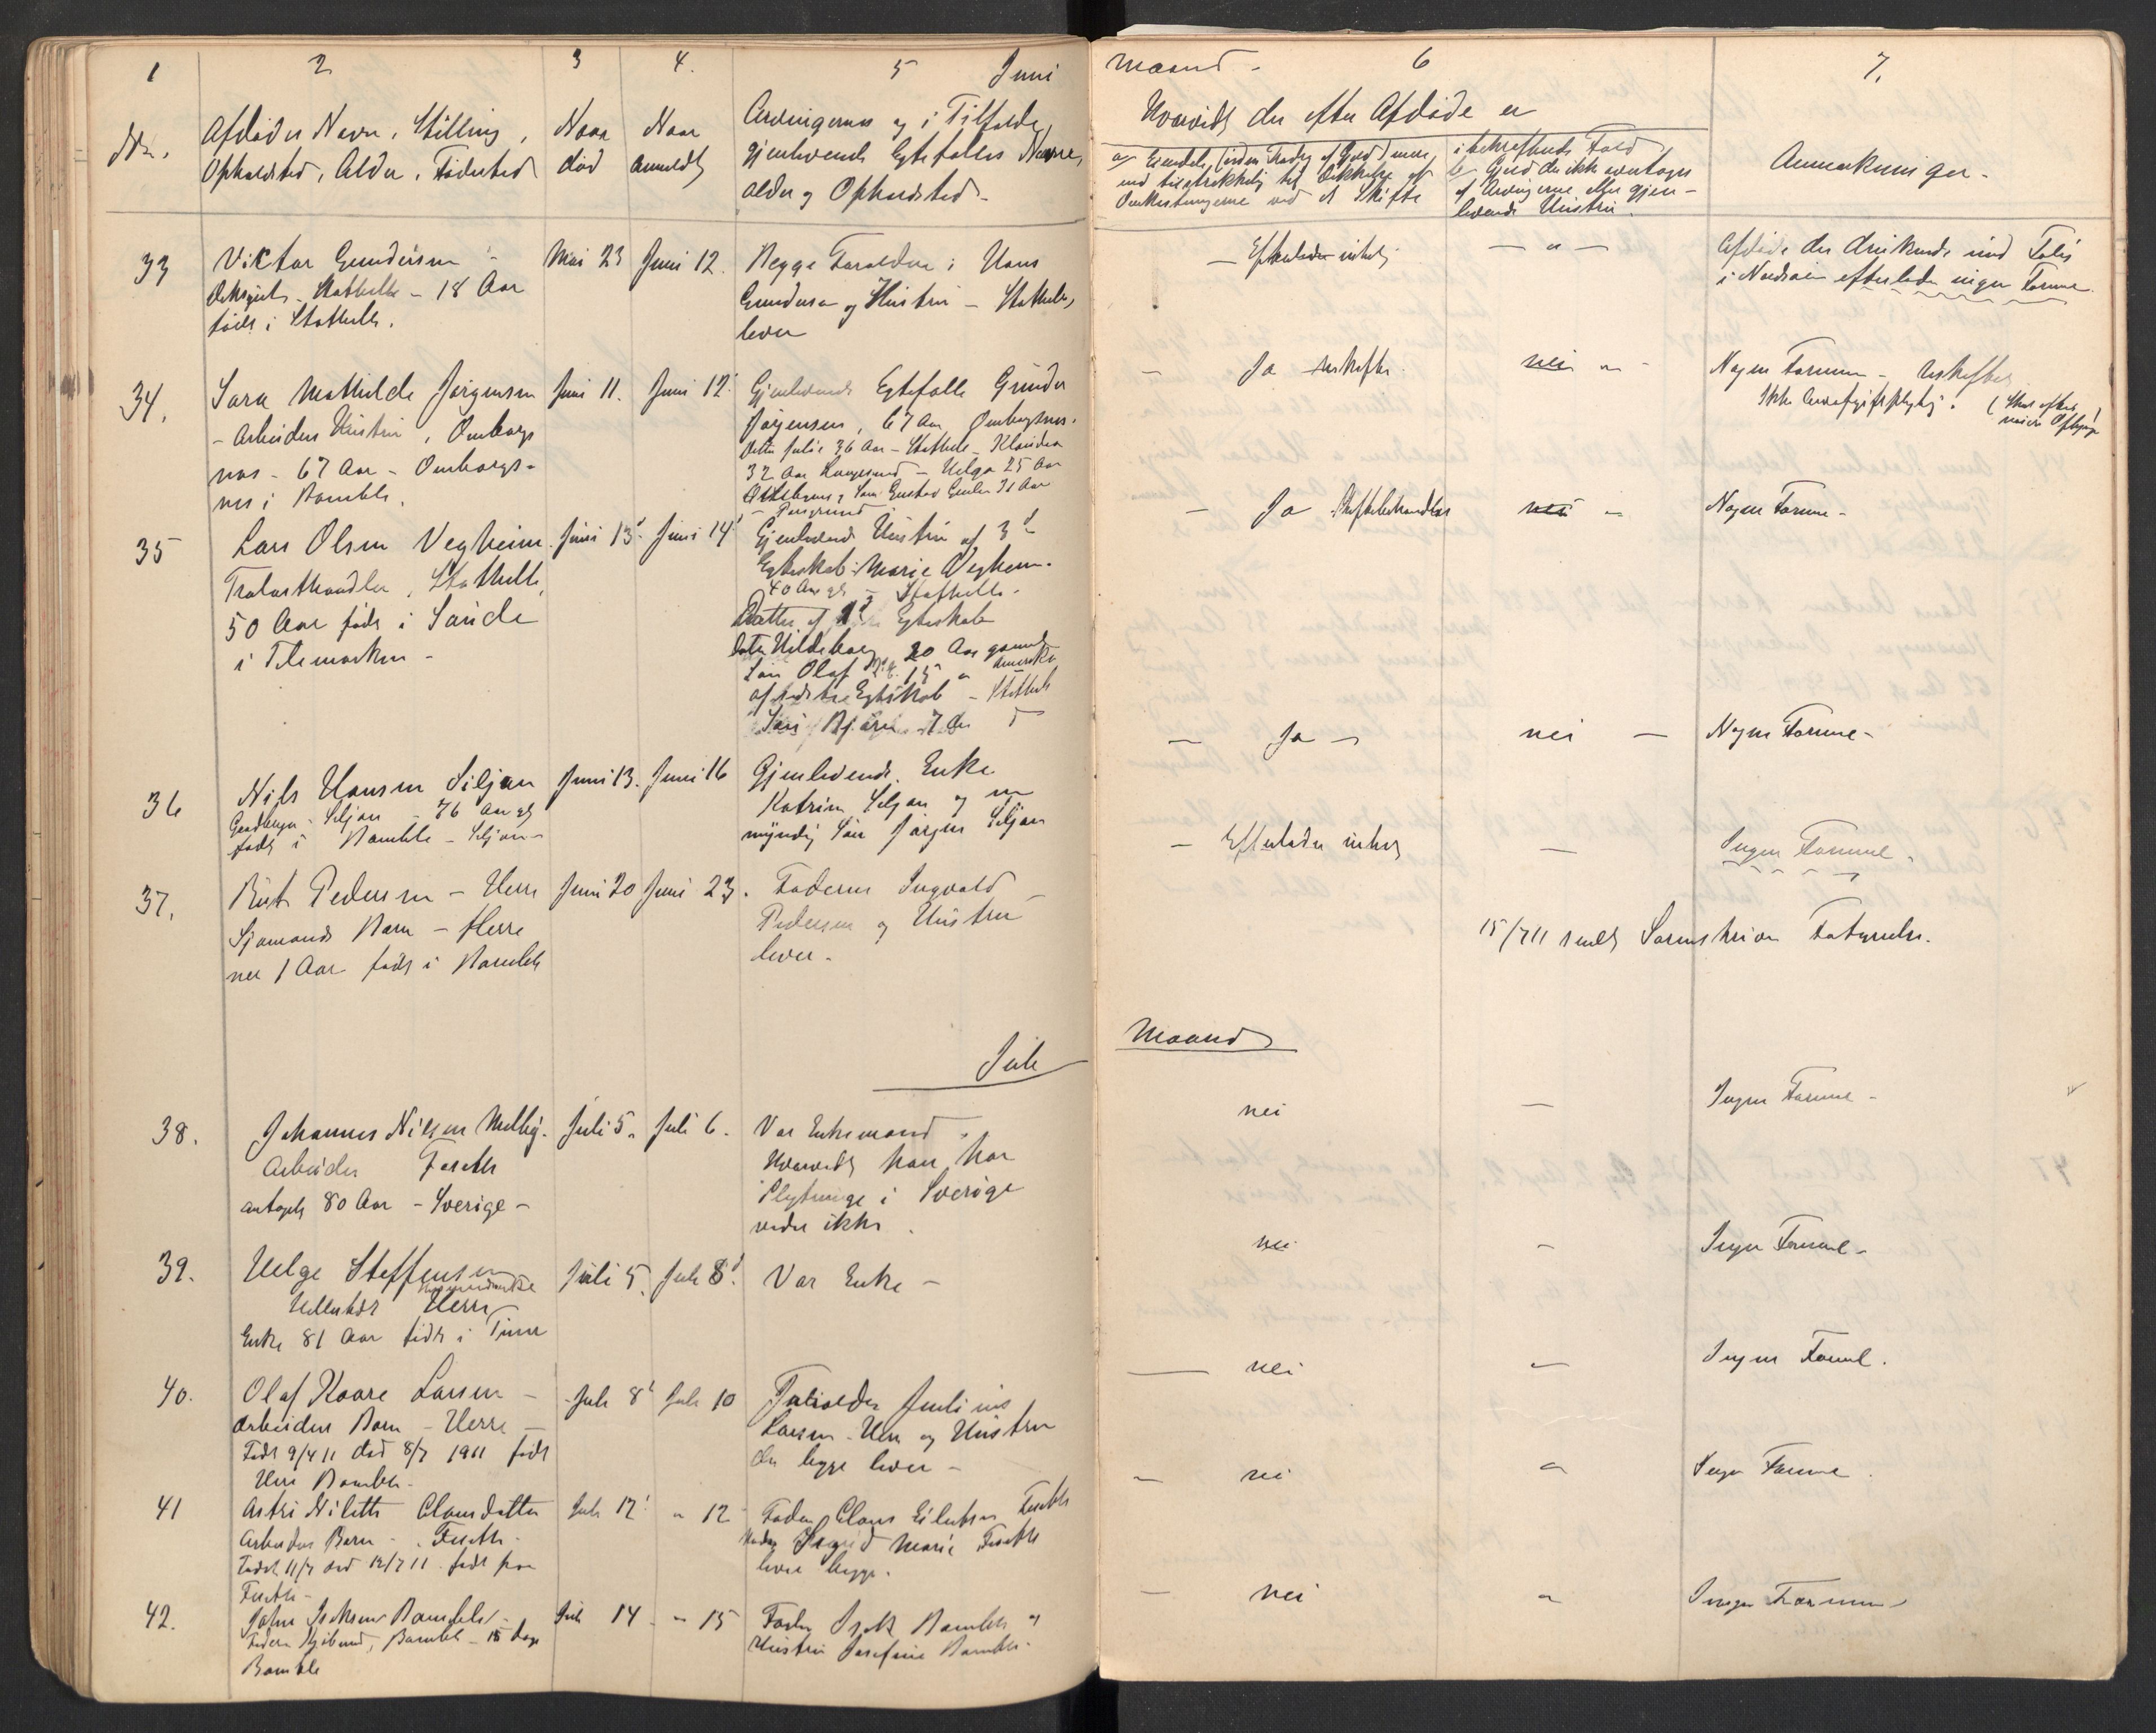 1 2 3 4. 5 Juni
Nr. Afdødes Navn, Stilling, Naar Naar Arvingernes og i Tilfælde
Opholdsted, Alder, Fødested død anmeldt gjenlevende Egtefælles Navne,
alder og Opholdsted -
33 Viktor Gundersen Mai 23 Juni 12. Begge Foræld­re i Hans
Stathelle - 18 Aar Gundersen og Hustru - Stathelle,
født i Stathelle. lever
34. Sara Mathilde Jørgensen Juni 11. Juni 12 Gjenlevende Egtefælle Gunder
- Arbeiders Hustru, Omborgs Jørgensen, 67 Aar Omborgsnes.
nes - 67 Aar - Omborgs- 36 Aar - Stathelle -
nes i Bamble. 32 Aar Langesund - Helga 25 Aar
Søn Gustav 31 Aar
- Porsgrund
35 Lars Olsen Vegheim Juni 13 Juni 14 Gjenlevende Hustru af 3d
Trælasthandler, Stathelle, Egteskab: Marie Vegheim.
50 Aar født i Saude 40 Aar gl - Stathelle.
i Telemarken - Datter af Egteskab
Hildeborg 20 Aar gammel
Søn Olaf 15 " Amerika
af sidste Egteskab - Stathelle
Søn Bjarne 7 Aar
36 Nils Hansen Siljan Juni 13. Juni 16 Gjenlevende Enke
Siljan - 76 Aar gl Katrine Siljan og en
født i Bamble - Siljan - myndig Søn Jørgen Siljan
37. Rut Pedersen - Herre Juni 20 Juni 23. Faderen Ingvald
Sjømands Barn - Herre Pedersen og Hustru
1 Aar født i Bamble lever.
Juli
38. Johannes Nilsen Melby. Juli 5. Juli 6. Var Enkemand
Arbeider Hvorvidt han har
antagelig 80 Aar - Sverige - Slegtninge i Sverige
vides ikke.
39. Helge Steffensen Juli 5. Juli 8. Var Enke -
Herre
Enke 81 Aar født i Tinn
40. Olaf Kaare Larsen - Juli 8 Juli 10 Forældre Julius
Arbeiders Barn - Herre - Larsen - Herre og Hustru
Født 9/4 11 død 8/7 1911 født de begge lever -
Herre Bamble -
41 Astri Clausdatter Juli 12 " 12 Fader Claus Eilertsen
Arbeiders Barn - Moder Sigrid Marie
Født 11/7 død 12/7 11. født paa lever begge.
42. John Isaksen Bamble - Juli 14 - " 15 Fader Isak Bamble og
Bamble - 15 dage Hustru Josefine Bamble.
Bamble
Maaned - 6 7.
Hvorvidt der efter Afdøde er
a) Eiendele (uden Fradrag af Gjæld) mere i bekræftende Fald
end tilstrækkelig til Dækkelse af b) Gjæld der ikke overtages Anmærkninger -
Omkostningerne ved et Skifte af Arvingerne eller gjen-
levende Hustru.
- Efterlader intet - " - Afdøde der druknede med
i Nordsjøen efterlader ingen Formue.
- Ja uskiftet. nei " - Nogen Formue - Uskiftet
Ikke Arveafgiftspligtig.
- Ja Skiftebehandles nei - Nogen Formue -
- Ja - nei - Nogen Formue -
- Efterlader intet - Ingen Formue.
15/7 11 sendt Sorenskriver Fortegnelse.
Maaned
nei - Ingen Formue -
nei - Ingen Formue -
- nei - Ingen Formue.
- nei " Ingen Formue.
- nei " Ingen Formue